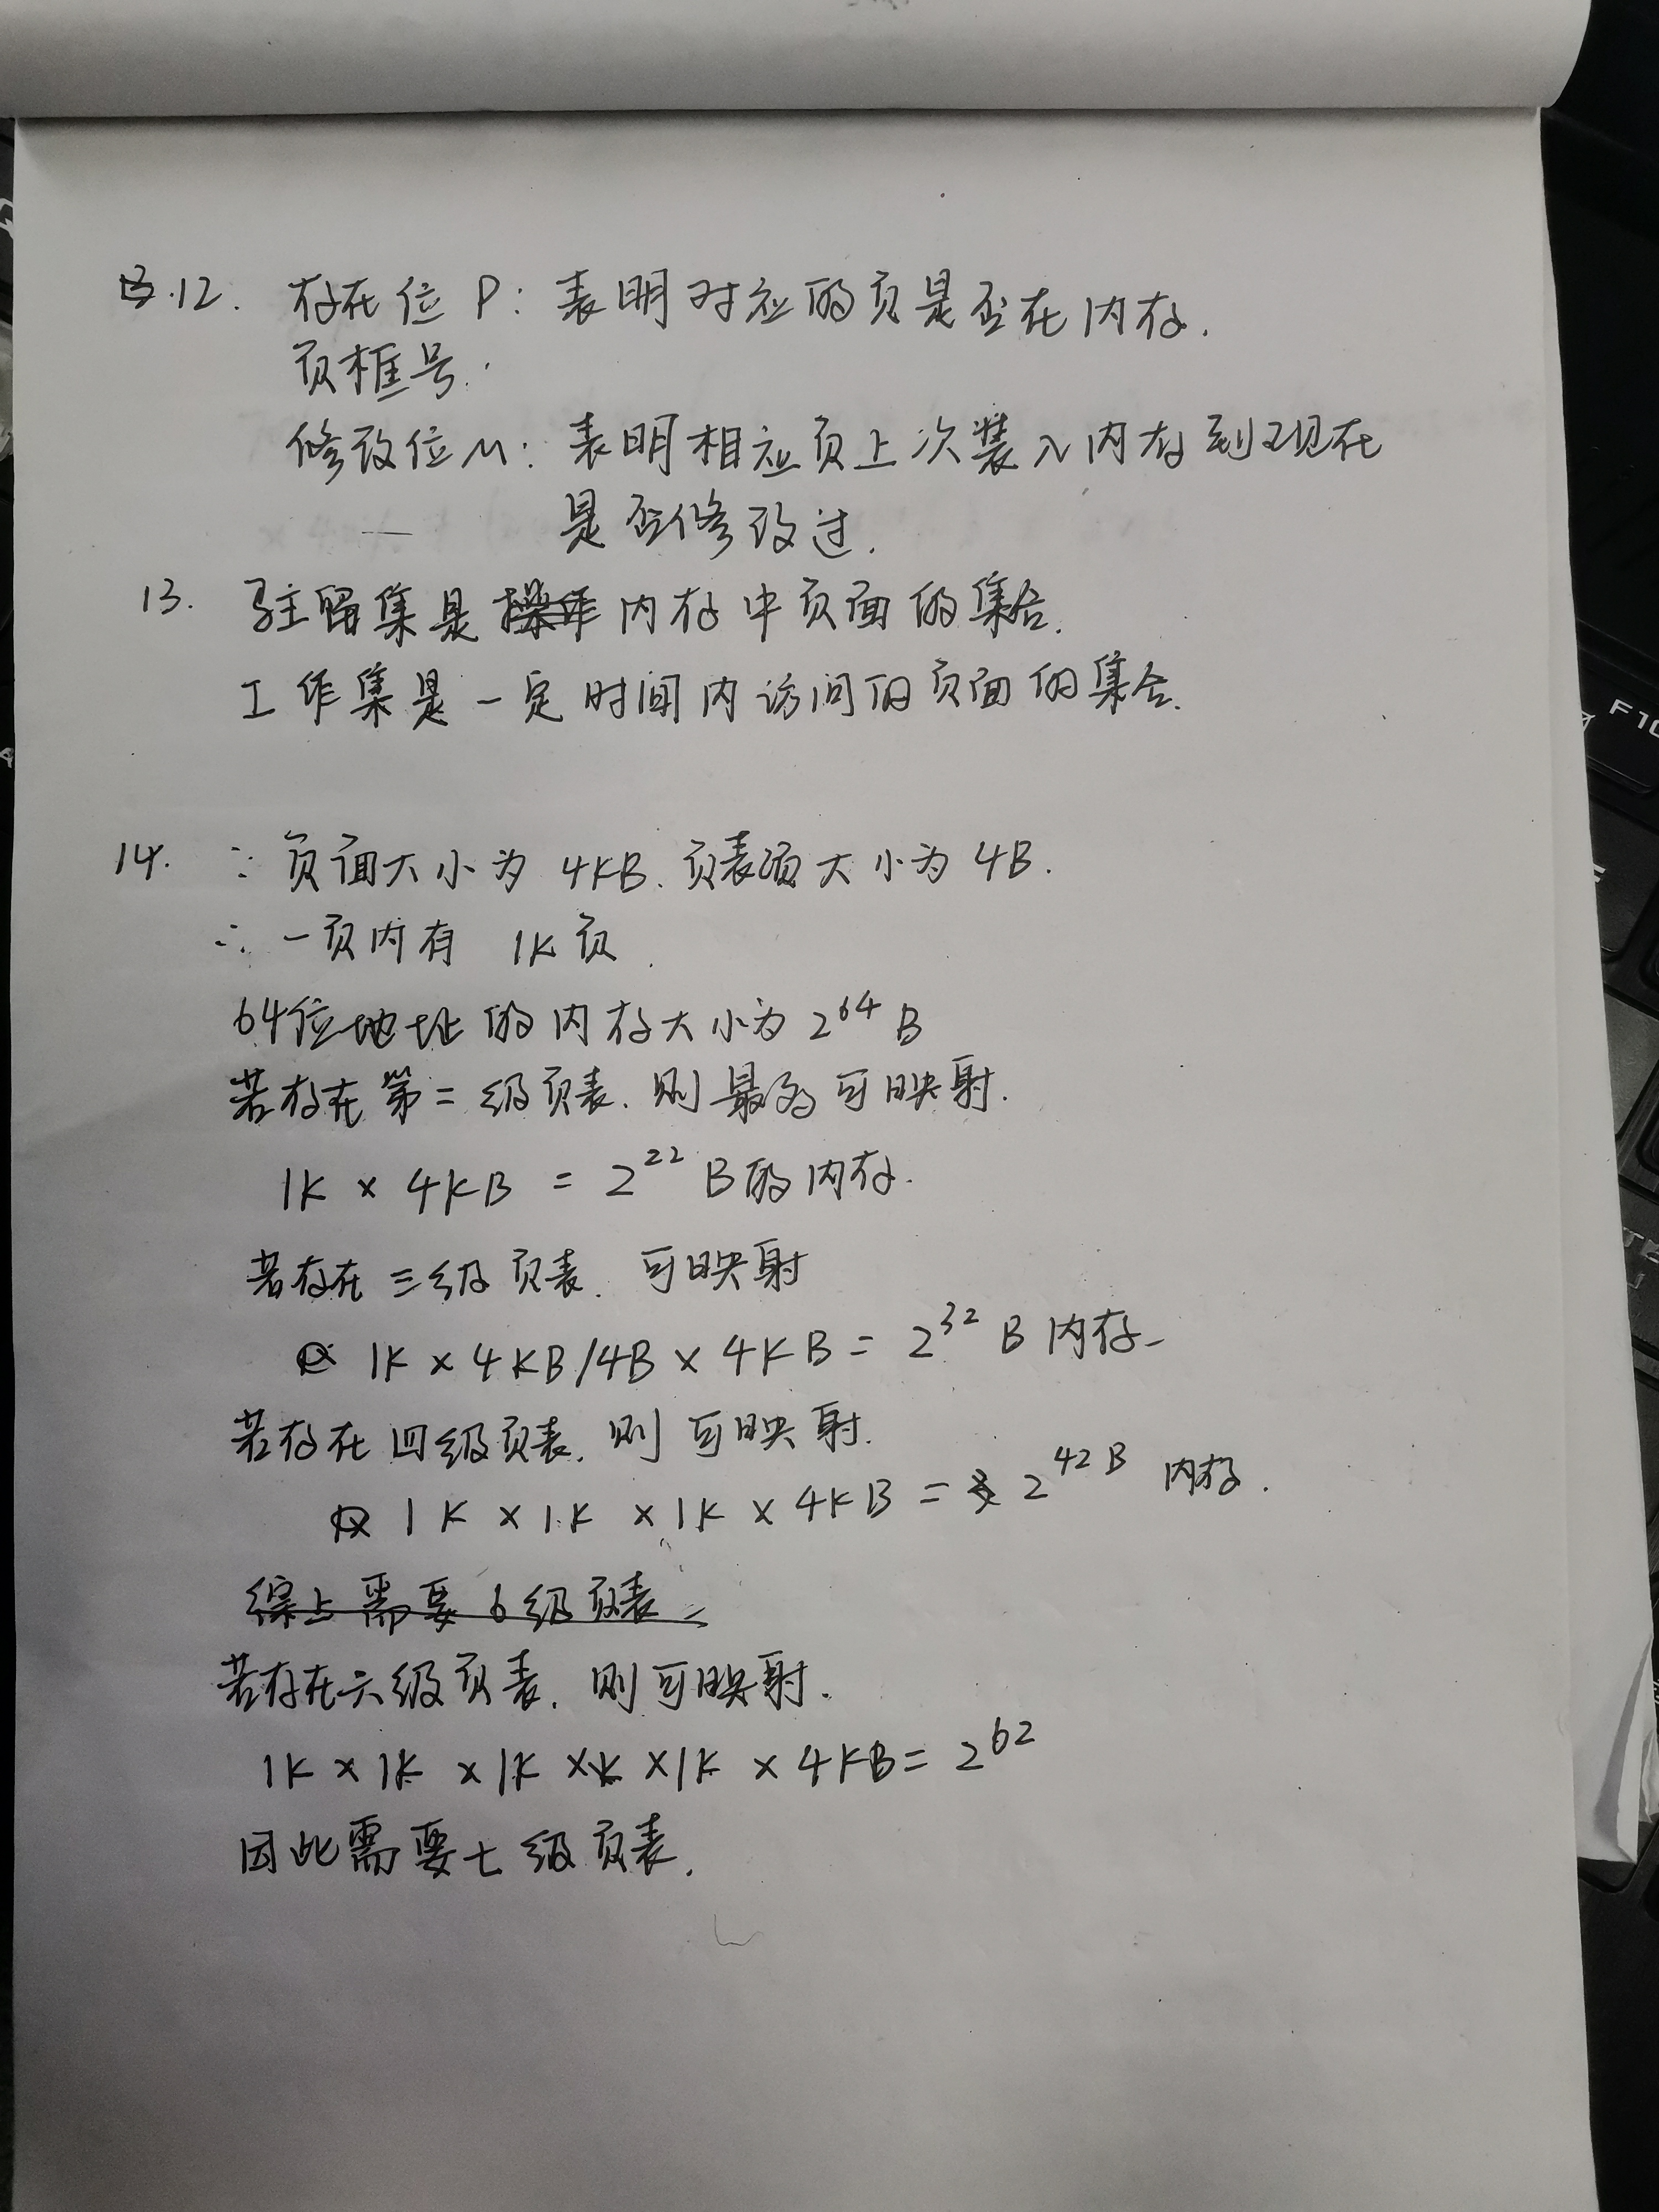 12. 存在位 P: 表明对应的页是否在内存.
页框号:
修改位M: 表明相应页上次装入内存到现在
是否修改过.
13. 驻留集是内存中页面的集合.
工作集是一定时间内访问的页面的集合.
14. ∵页面大小为 4KB. 页表项大小为 4B.
∴一页内有 1K页.
64位地址的内存大小为 2^64 B
若存在第二级页表. 则最多可映射.
1K × 4KB = 2^22 B的内存.
若存在三级页表. 可映射
1K × 4KB/4B × 4KB = 2^32 B内存.
若存在四级页表. 则可映射.
1K × 1K × 1K × 4KB = 2^42 B 内存.
综上需要6级页表
若存在六级页表. 则可映射.
1K × 1K × 1K × K × 1K × 4KB = 2^62
因此需要七级页表.
F10